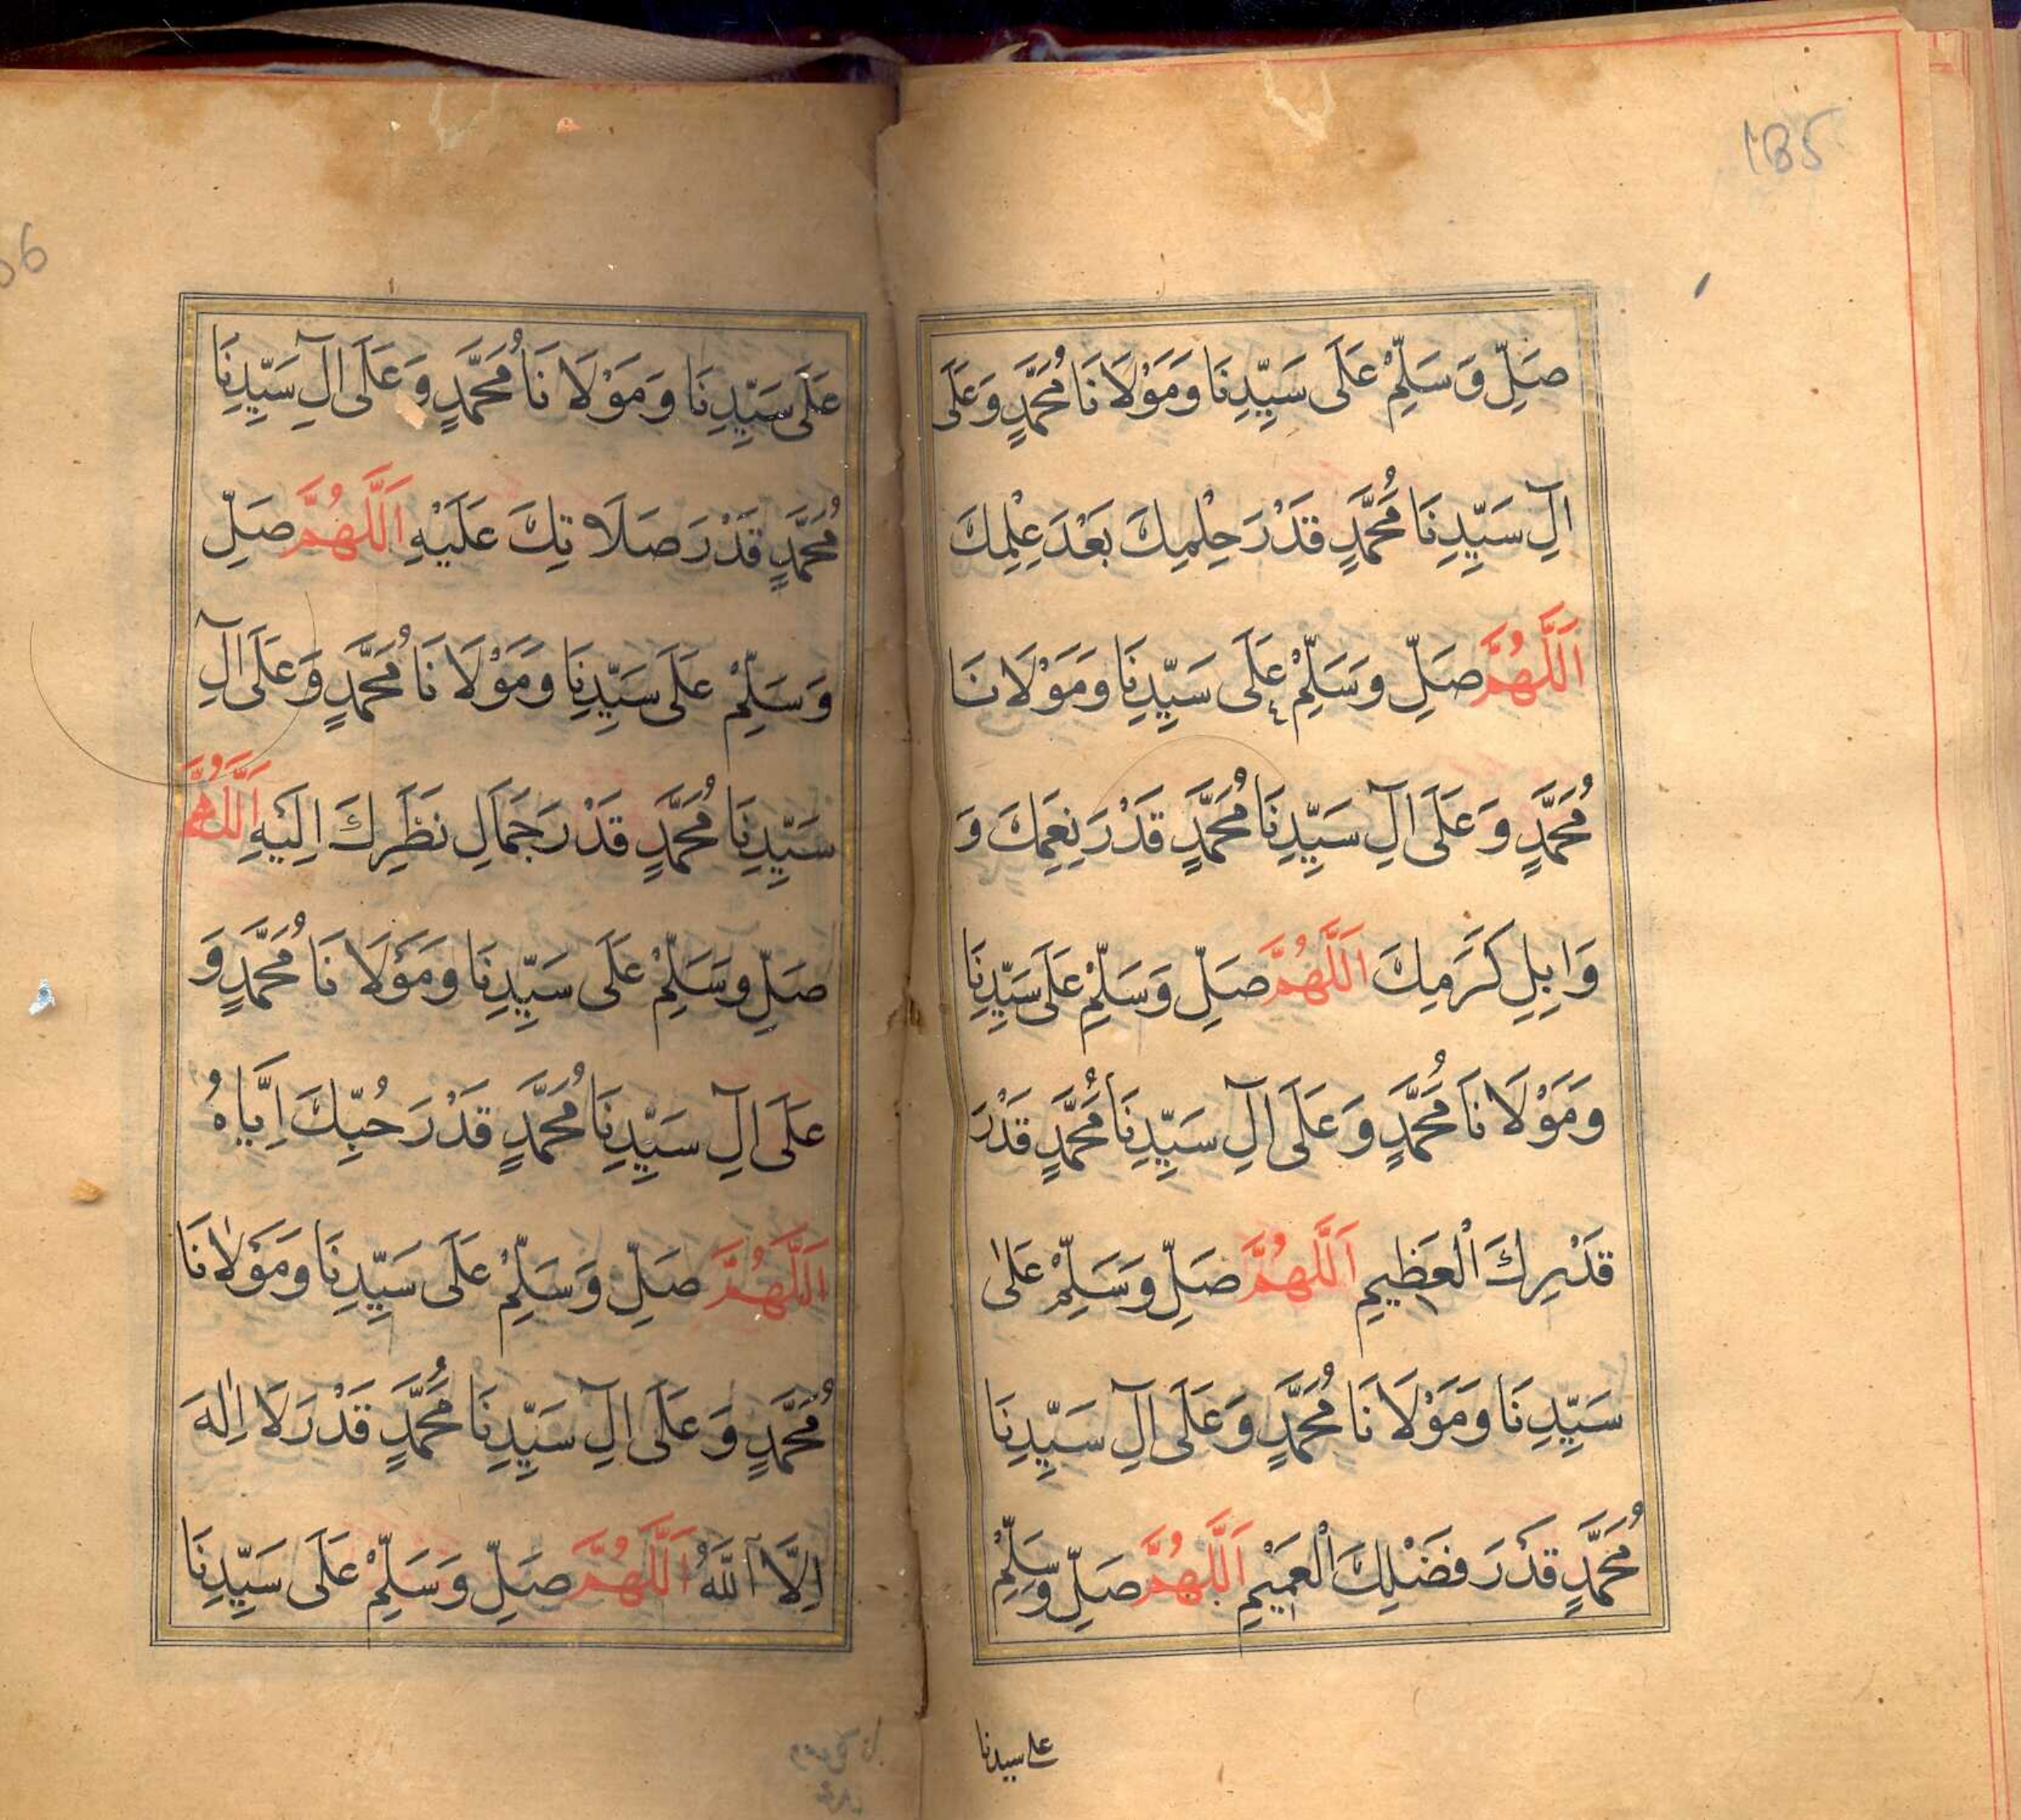 185
صَلِّ وَسَلِّمْ عَلَى سَيِّدِنَا وَمَوْلَانَا مُحَمَّدٍ وَعَلَى
اٰلِ سَيِّدِنَا مُحَمَّدٍ قَدْرَ حِلْمِكَ بَعْدَ عِلْمِكَ
اَللّٰهُمَّ صَلِّ وَسَلِّمْ عَلَى سَيِّدِنَا وَمَوْلَانَا
مُحَمَّدٍ وَعَلَى اٰلِ سَيِّدِنَا مُحَمَّدٍ قَدْرَ نِعَمِكَ وَ
وَابِلِ كَرَمِكَ اَللّٰهُمَّ صَلِّ وَسَلِّمْ عَلَى سَيِّدِنَا
وَمَوْلَانَا مُحَمَّدٍ وَعَلَى اٰلِ سَيِّدِنَا مُحَمَّدٍ قَدْرَ
قَدْرِكَ الْعَظِيمِ اَللّٰهُمَّ صَلِّ وَسَلِّمْ عَلٰى
سَيِّدِنَا وَمَوْلَانَا مُحَمَّدٍ وَعَلَى اٰلِ سَيِّدِنَا
مُحَمَّدٍ قَدْرَ فَضْلِكَ الْعَمِيْمِ اَللّٰهُمَّ صَلِّ وَسَلِّمْ
على سيدنا
عَلَى سَيِّدِنَا وَمَوْلَانَا مُحَمَّدٍ وَعَلَى اٰلِ سَيِّدِنَا
مُحَمَّدٍ قَدْرَ صَلَاتِكَ عَلَيْهِ اَللّٰهُمَّ صَلِّ
وَسَلِّمْ عَلَى سَيِّدِنَا وَمَوْلَانَا مُحَمَّدٍ وَعَلَى اٰلِ
سَيِّدِنَا مُحَمَّدٍ قَدْرَ جَمَالِ نَظَرِكَ اِلَيْهِ اَللّٰهُمَّ
صَلِّ وَسَلِّمْ عَلَى سَيِّدِنَا وَمَوْلَانَا مُحَمَّدٍ وَ
عَلَى اٰلِ سَيِّدِنَا مُحَمَّدٍ قَدْرَ حُبِّكَ اِيَّاهُ
اَللّٰهُمَّ صَلِّ وَسَلِّمْ عَلَى سَيِّدِنَا وَمَوْلَانَا
مُحَمَّدٍ وَعَلَى اٰلِ سَيِّدِنَا مُحَمَّدٍ قَدْرَ لَا اِلٰهَ
اِلَّا اللّٰهُ اَللّٰهُمَّ صَلِّ وَسَلِّمْ عَلَى سَيِّدِنَا